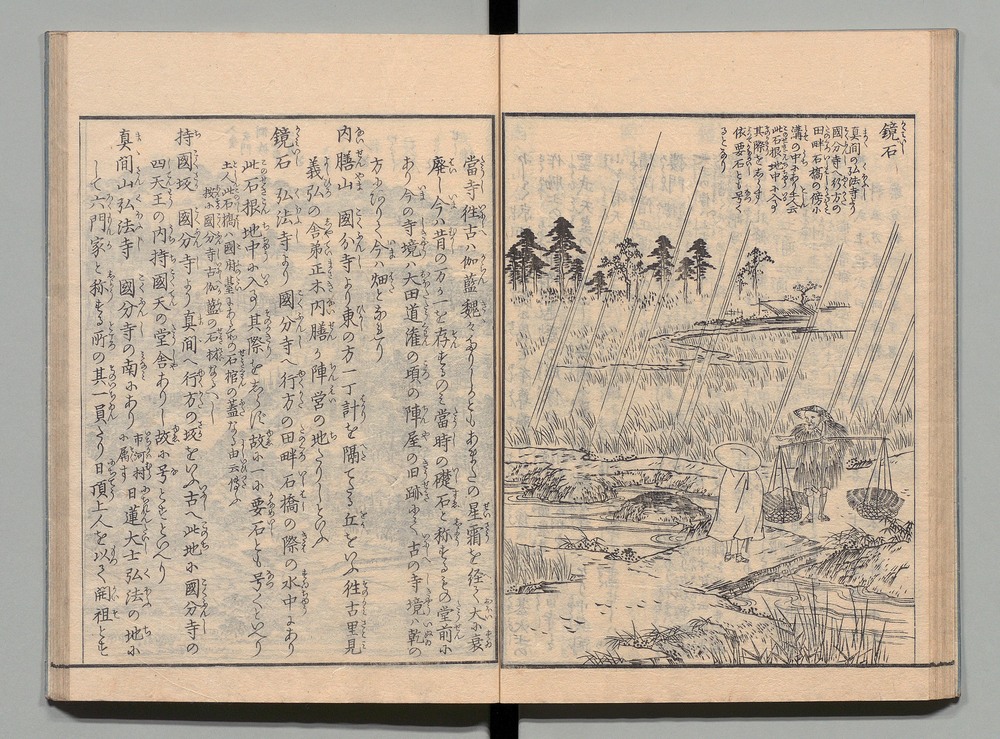 鏡石
真間の弘法寺より
國分寺へ行方の
田畔石橋の傍小
溝の中にあり土人云
此石根地中に入事
其際をしらす
依要石とも号く
るとあり
當寺往古ハ伽藍魏々たりしかともあまたの星霜を経て大に衰
廃し今ハ昔の方か一を存するのミ當時の礎石と称するもの堂前に
あり今の寺境ハ大田道潅の頃の陣屋の旧跡にて古の寺境ハ乾の
方にありて今ハ畑となれり
内膳山 國分寺より東の方一丁計を隔てたる丘をいふ往古里見
義弘の舎弟正木内膳か陣営の地なりしといふ
鏡石 弘法寺より國分寺へ行方の田畔石橋の際の水中にあり
此石根地中に入事其際をしらす故に一に要石とも号くといへり
土人此石橋ハ國府臺にある所の石棺の蓋なる由云傳ふ
按に國分寺古伽藍の石材なるへし
持國坂 國分寺より真間へ行方の坂をいふ古へ此地に國分寺の
四天王の内持國天の堂舎ありし故に号とすといへり
真間山弘法寺 國分寺の南にあり
市河村
に属す
日蓮大士弘法の地に
して六門家と称する所の其一員たり日頂上人を以て開祖とす